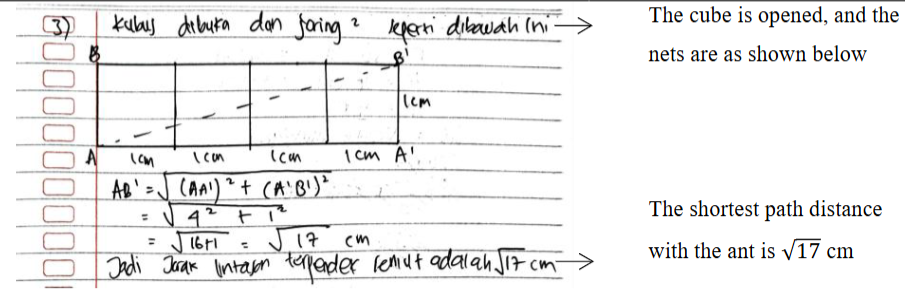 3) kubus dibuka dan jaring² seperti dibawah ini
The cube is opened, and the
nets are as shown below
B B'
1cm
A 1cm 1cm 1cm 1cm A'
AB' = √(AA')² + (A'B')²
= √4² + 1²
= √16+1 = √17 cm
Jadi Jarak lintasan terpendek semut adalah √17 cm
The shortest path distance
with the ant is √17 cm